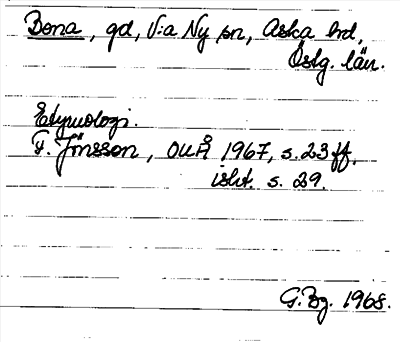 Bona, gd, V:a Ny sn, Aska hd,
Östg. län.
Etymologi.
F. Jönsson, OUÅ 1967, s. 23 ff,
s. 29.
G. Bg. 1968.